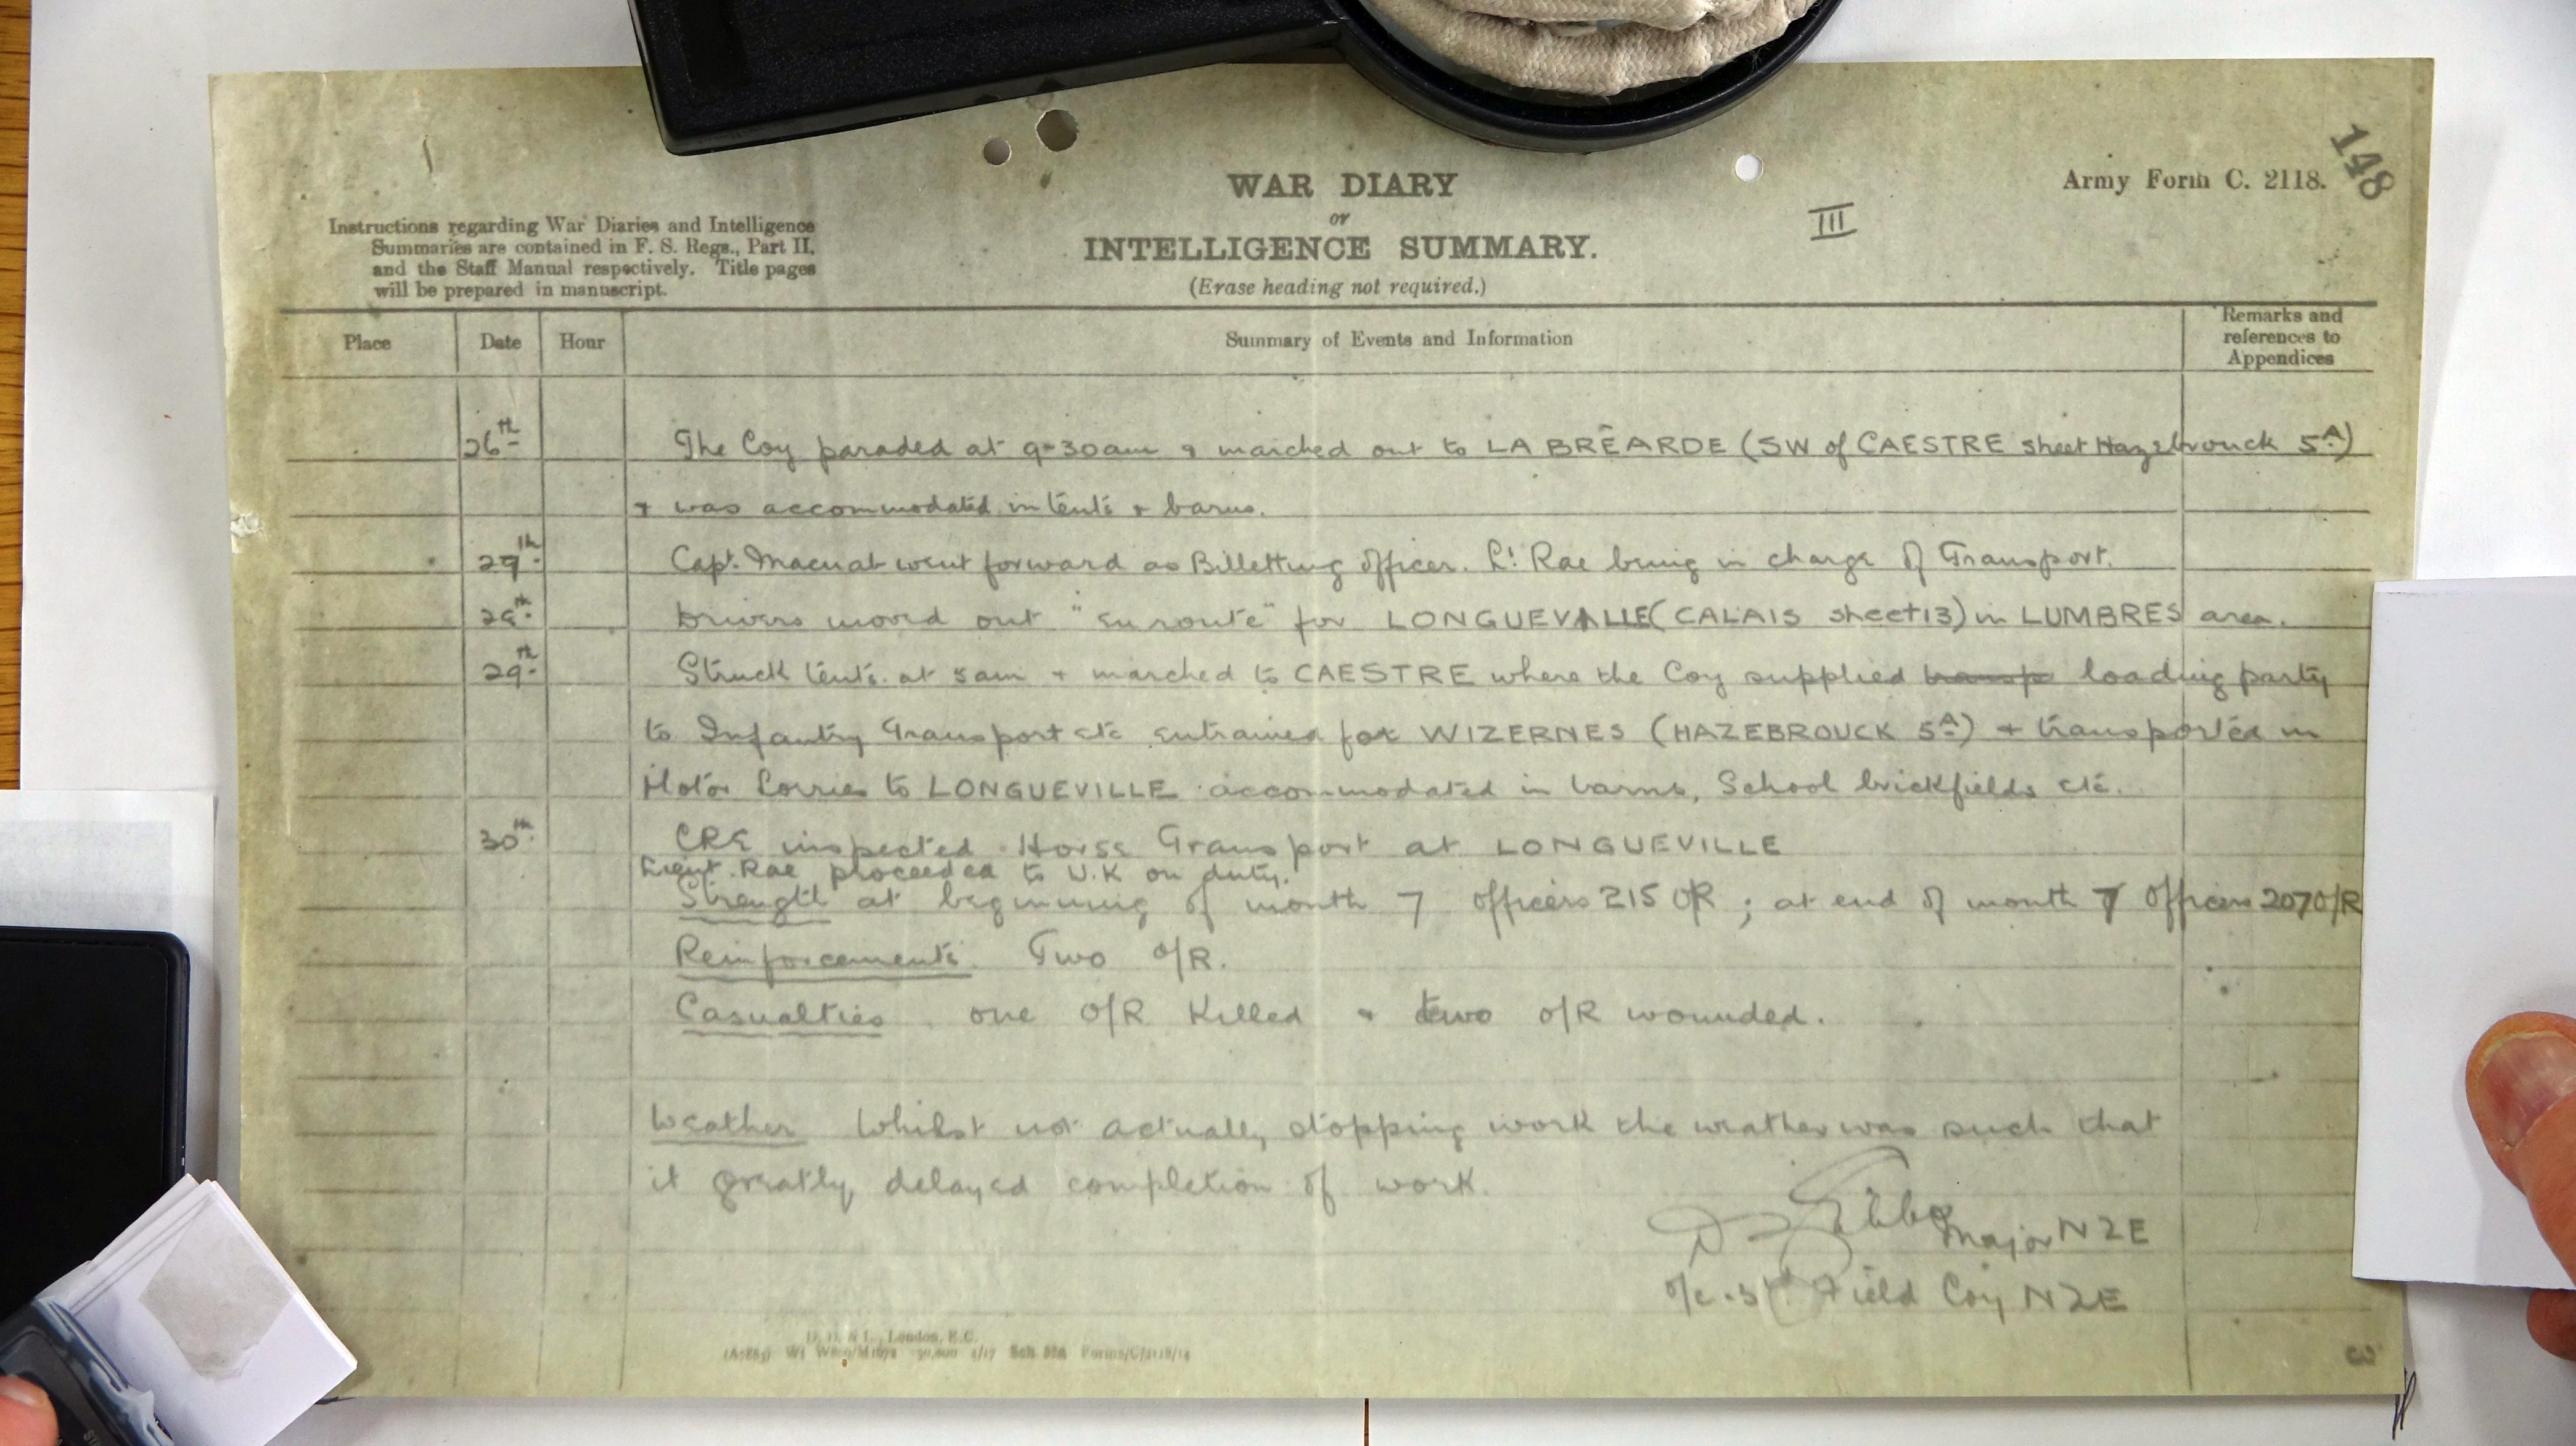 148
WAR DIARY
or
INTELLIGENCE SUMMARY.
(Erase heading not required.)
III
Army Form C. 2118.
Instructions regarding War Diaries and Intelligence
Summaries are contained in F. S. Regs., Part II.
and the Staff Manual respectively. Title pages
will be prepared in manuscript.
Place Date Hour Summary of Events and Information Remarks and references to Appendices
26th The Coy paraded at 9-30am & marched out to LA BRÊARDE (SW of CAESTRE sheet Hazebrouck 5A)
+ was accommodated in tents + barns.
Capt. Macnab went forward as Billetting officer. Lt Rae being in charge of Transport.
28th Drivers moved out "en route" for LONGUEVILLE (CALAIS sheet 13) in LUMBRES area.
29th Struck tents at 5am + marched to CAESTRE where the Coy supplied transp loading party
to Infantry Transport etc entrained for WIZERNES (HAZEBROUCK 5A) + transported in
Motor Lorries to LONGUEVILLE accommodated in barns, School brickfields etc.
30th CRE inspected Horse Transport at LONGUEVILLE
Lieut. Rae proceeded to U.K on duty.
Strength at beginning of month 7 officers 215 O/R ; at end of month 7 Officers 207 O/R
Reinforcements. Two O/R.
Casualties. one O/R Killed + two O/R wounded.
Weather Whilst not actually stopping work the weather was such that
it greatly delayed completion of work.
Gibbs Major NZE
o/c 3rd Field Coy NZE
D. D. & L., London, E.C.
Sch 52a Forms/C/2118/14